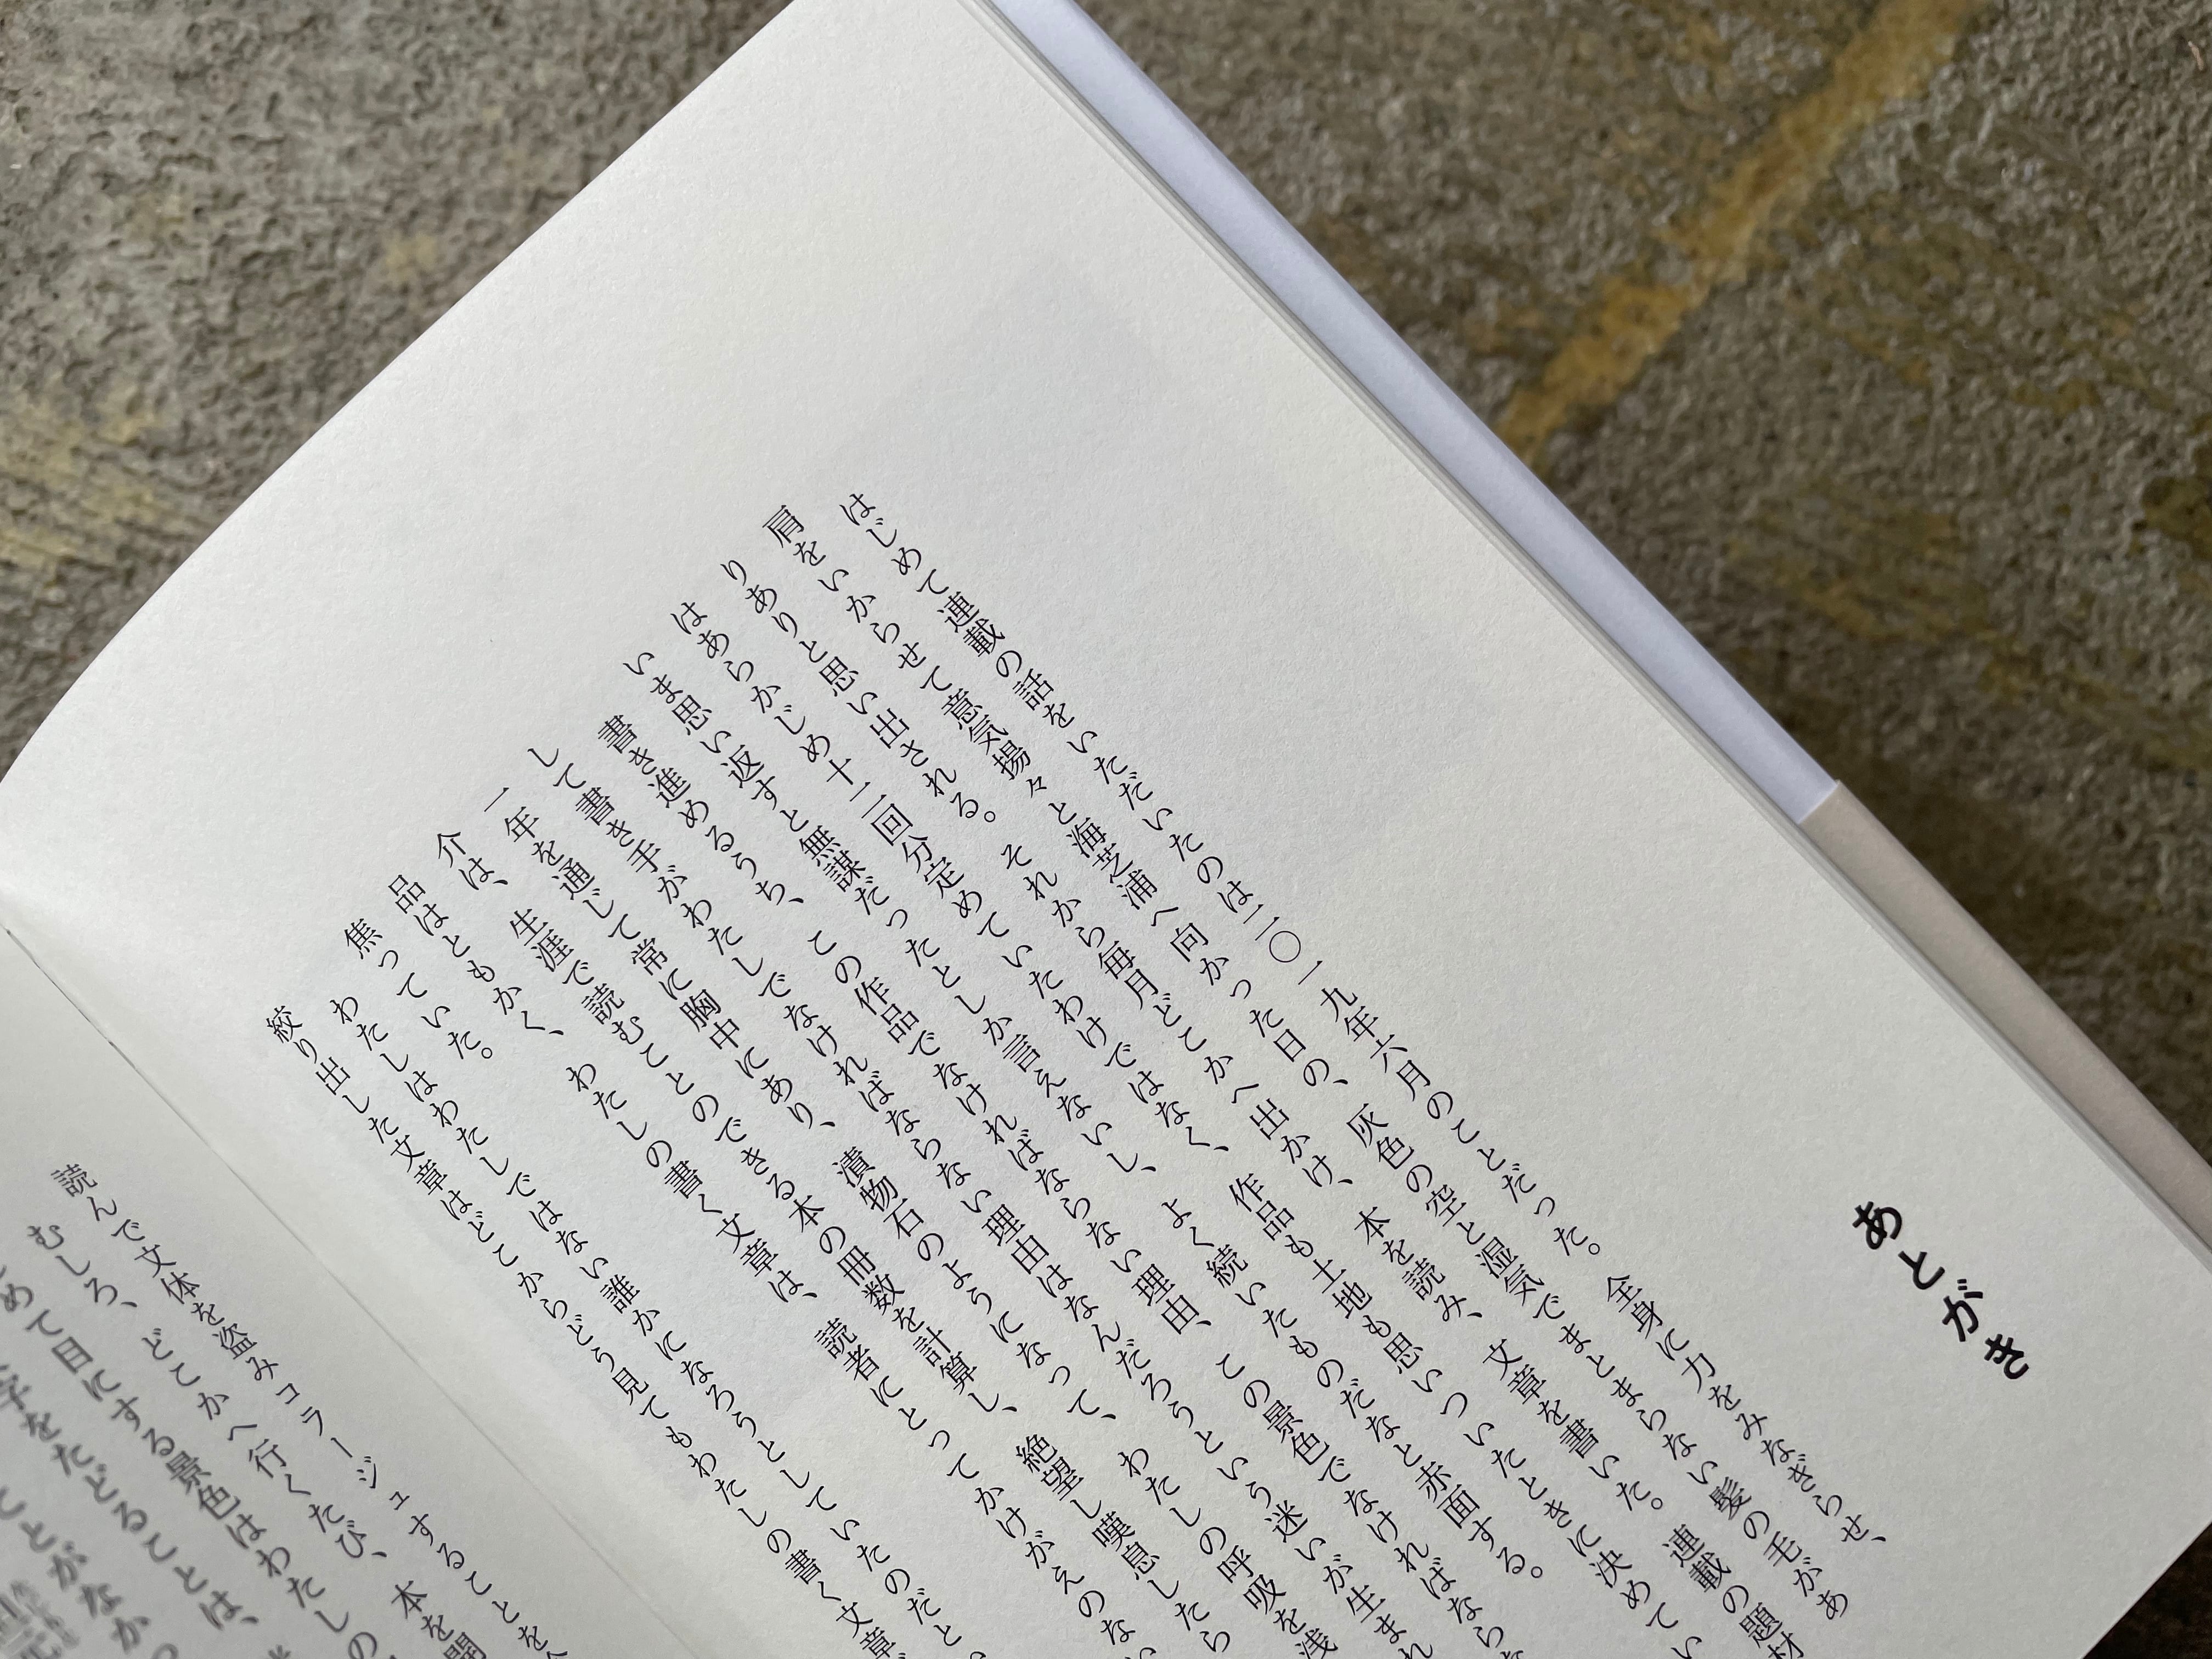 あとがき
はじめて連載の話をいただいたのは二〇一九年六月のことだった。全身に力をみなぎらせ、
肩をいからせて意気揚々と海芝浦へ向かった日の、灰色の空と湿気でまとまらない髪の毛があ
りありと思い出される。それから毎月どこかへ出かけ、本を読み、文章を書いた。連載の題材
はあらかじめ十二回分定めていたわけではなく、作品も土地も思いついたときに決めてい
いま思い返すと無謀だったとしか言えないし、よく続いたものだなと赤面する。
書き進めるうち、この作品でなければならない理由、この景色でなければなら
して書き手がわたしでなければならない理由はなんだろうという迷いが生まれ
一年を通して常に胸中にあり、漬物石のようになって、わたしの呼吸を浅
介は、生涯で読むことのできる本の冊数を計算し、絶望し嘆息したら
品はともかく、わたしの書く文章は、読者にとってかけがえのな
焦っていた。
わたしはわたしではない誰かになろうとしていたのだと
絞り出した文章はどこからどう見てもわたしの書く文章
読んで文体を盗みコラージュすることを
むしろ、どこかへ行くたび、本を開
めて目にする景色はわたしの
字をたどることは、
ことがなか